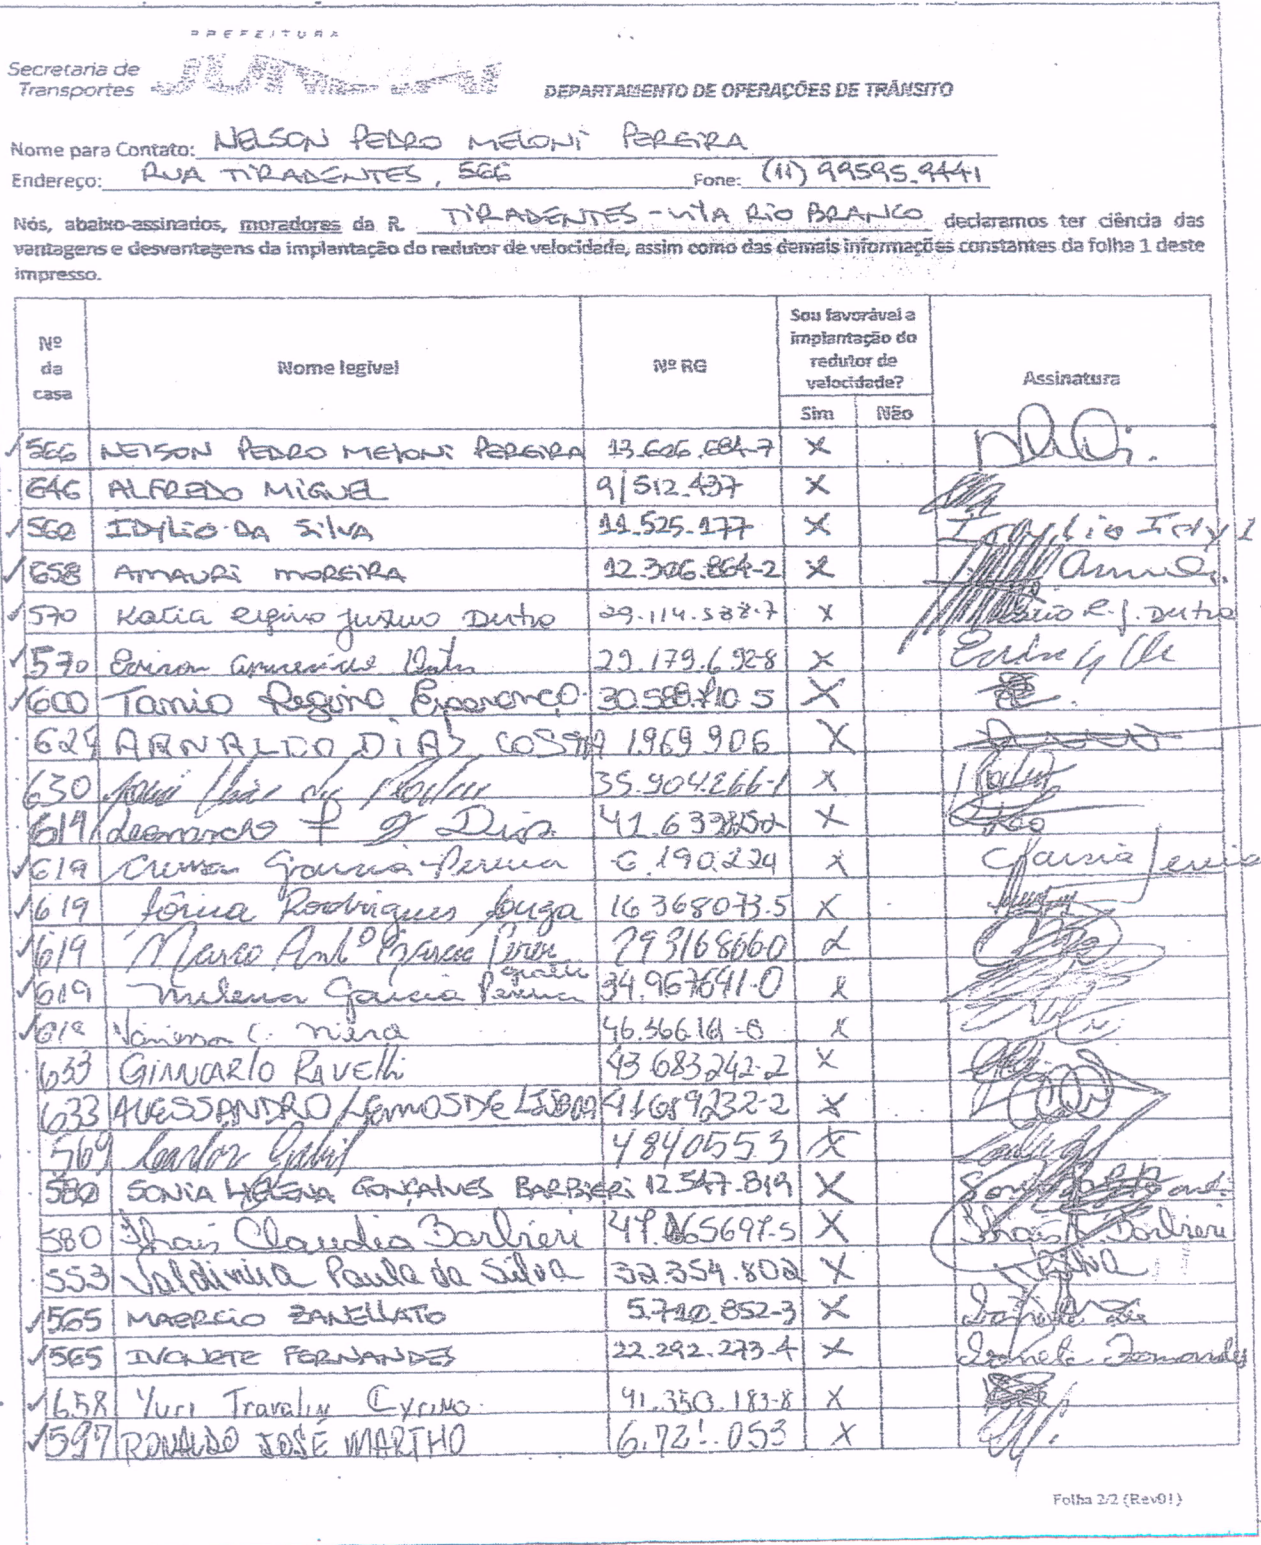 PREFEITURA
Secretaria de
Transportes
JUNDIAÍ
DEPARTAMENTO DE OPERAÇÕES DE TRÂNSITO
Nome para Contato: NELSON PEDRO MELONI PEREIRA
Endereço: RUA TIRADENTES, 566 Fone: (11) 99595.9441
Nós, abaixo-assinados, moradores da R. TIRADENTES - VILA RIO BRANCO declaramos ter ciência das
vantagens e desvantagens da implantação do redutor de velocidade, assim como das demais informações constantes da folha 1 deste
impresso.
Nº da casa Nome legível Nº RG Sou favorável a implantação do redutor de velocidade? Sim Não Assinatura
566 NELSON PEDRO MELONI PEREIRA 13.626.684-7 X
646 ALFREDO MIGUEL 9/512.437 X
560 IDYLIO DA SILVA 11.525.177 X
658 AMAURI MOREIRA 12.306.864-2 X
570 Katia Regina Dutra 29.114.538-7 X
570 29.179.692-8 X
600 Tamio Regino 30.588.710.5 X
624 ARNALDO DIAS COSTA 1969906 X
630 35.904.266-1 X
619 Leonardo X
619 Garcia Pereira 6.190.224 X Garcia Pereira
619 Rodrigues Souza 16368073.5 X
619 Marco Antº Garcia 293168660
619 Milena Garcia Pereira 34.967641-0 X
619 Vanessa C. X
633 GIANCARLO RAVELLI 43683242-2 X
633 ALESSANDRO LEMOS DE LISBOA 41689232-2 X
569 4840553 X
580 SONIA HELENA GONÇALVES BARBIERI 12.547.819 X
580 Thais Claudia Barbieri X Thais Barbieri
553 Valdivina Paula da Silva 32.354.802 X
565 MAERCIO ZANELLATO 5.710.852-3 X
565 IVONETE FERNANDES 22.292.273.4 X Ivonete Fernandes
658 Yuri Travalin Cyrino 41.350.183-8 X
597 RONALDO JOSÉ MARTHO X
Folha 2/2 (Rev01)